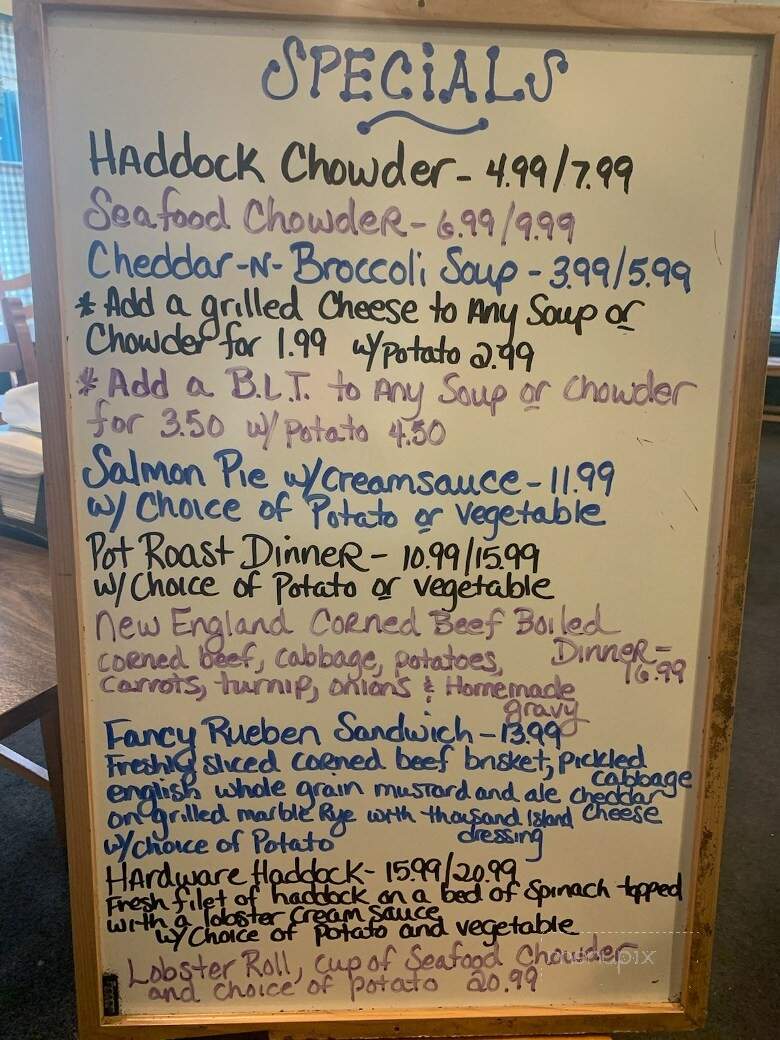 SPECiALS
HAddock Chowder - 4.99/7.99
Seafood ChowdeR - 6.99/9.99
Cheddar-N- Broccoli Soup - 3.99/5.99
* Add a grilled Cheese to Any Soup or
Chowder for 1.99 w/potato 2.99
* Add a B.L.T. to Any Soup or Chowder
for 3.50 w/ potato 4.50
Salmon Pie w/creamsauce - 11.99
w/ Choice of Potato or vegetable
Pot Roast DinneR - 10.99/15.99
w/ Choice of Potato or vegetable
New England CoRned Beef Boiled
DinneR -
corned beef, cabbage, potatoes,
16.99
carrots, turnip, onions & Homemade
gravy
Fancy Rueben Sandwich - 13.99
Freshly sliced corned beef brisket, pickled
cabbage
english whole grain mustard and ale cheddar
on grilled marble Rye with thousand island cheese
w/choice of Potato dressing
HArdware Haddock - 15.99/20.99
Fresh filet of haddock on a bed of spinach topped
with a lobster cream sauce
w/ Choice of potato and vegetable
Lobster Roll, cup of Seafood Chowder
and choice of potato 20.99